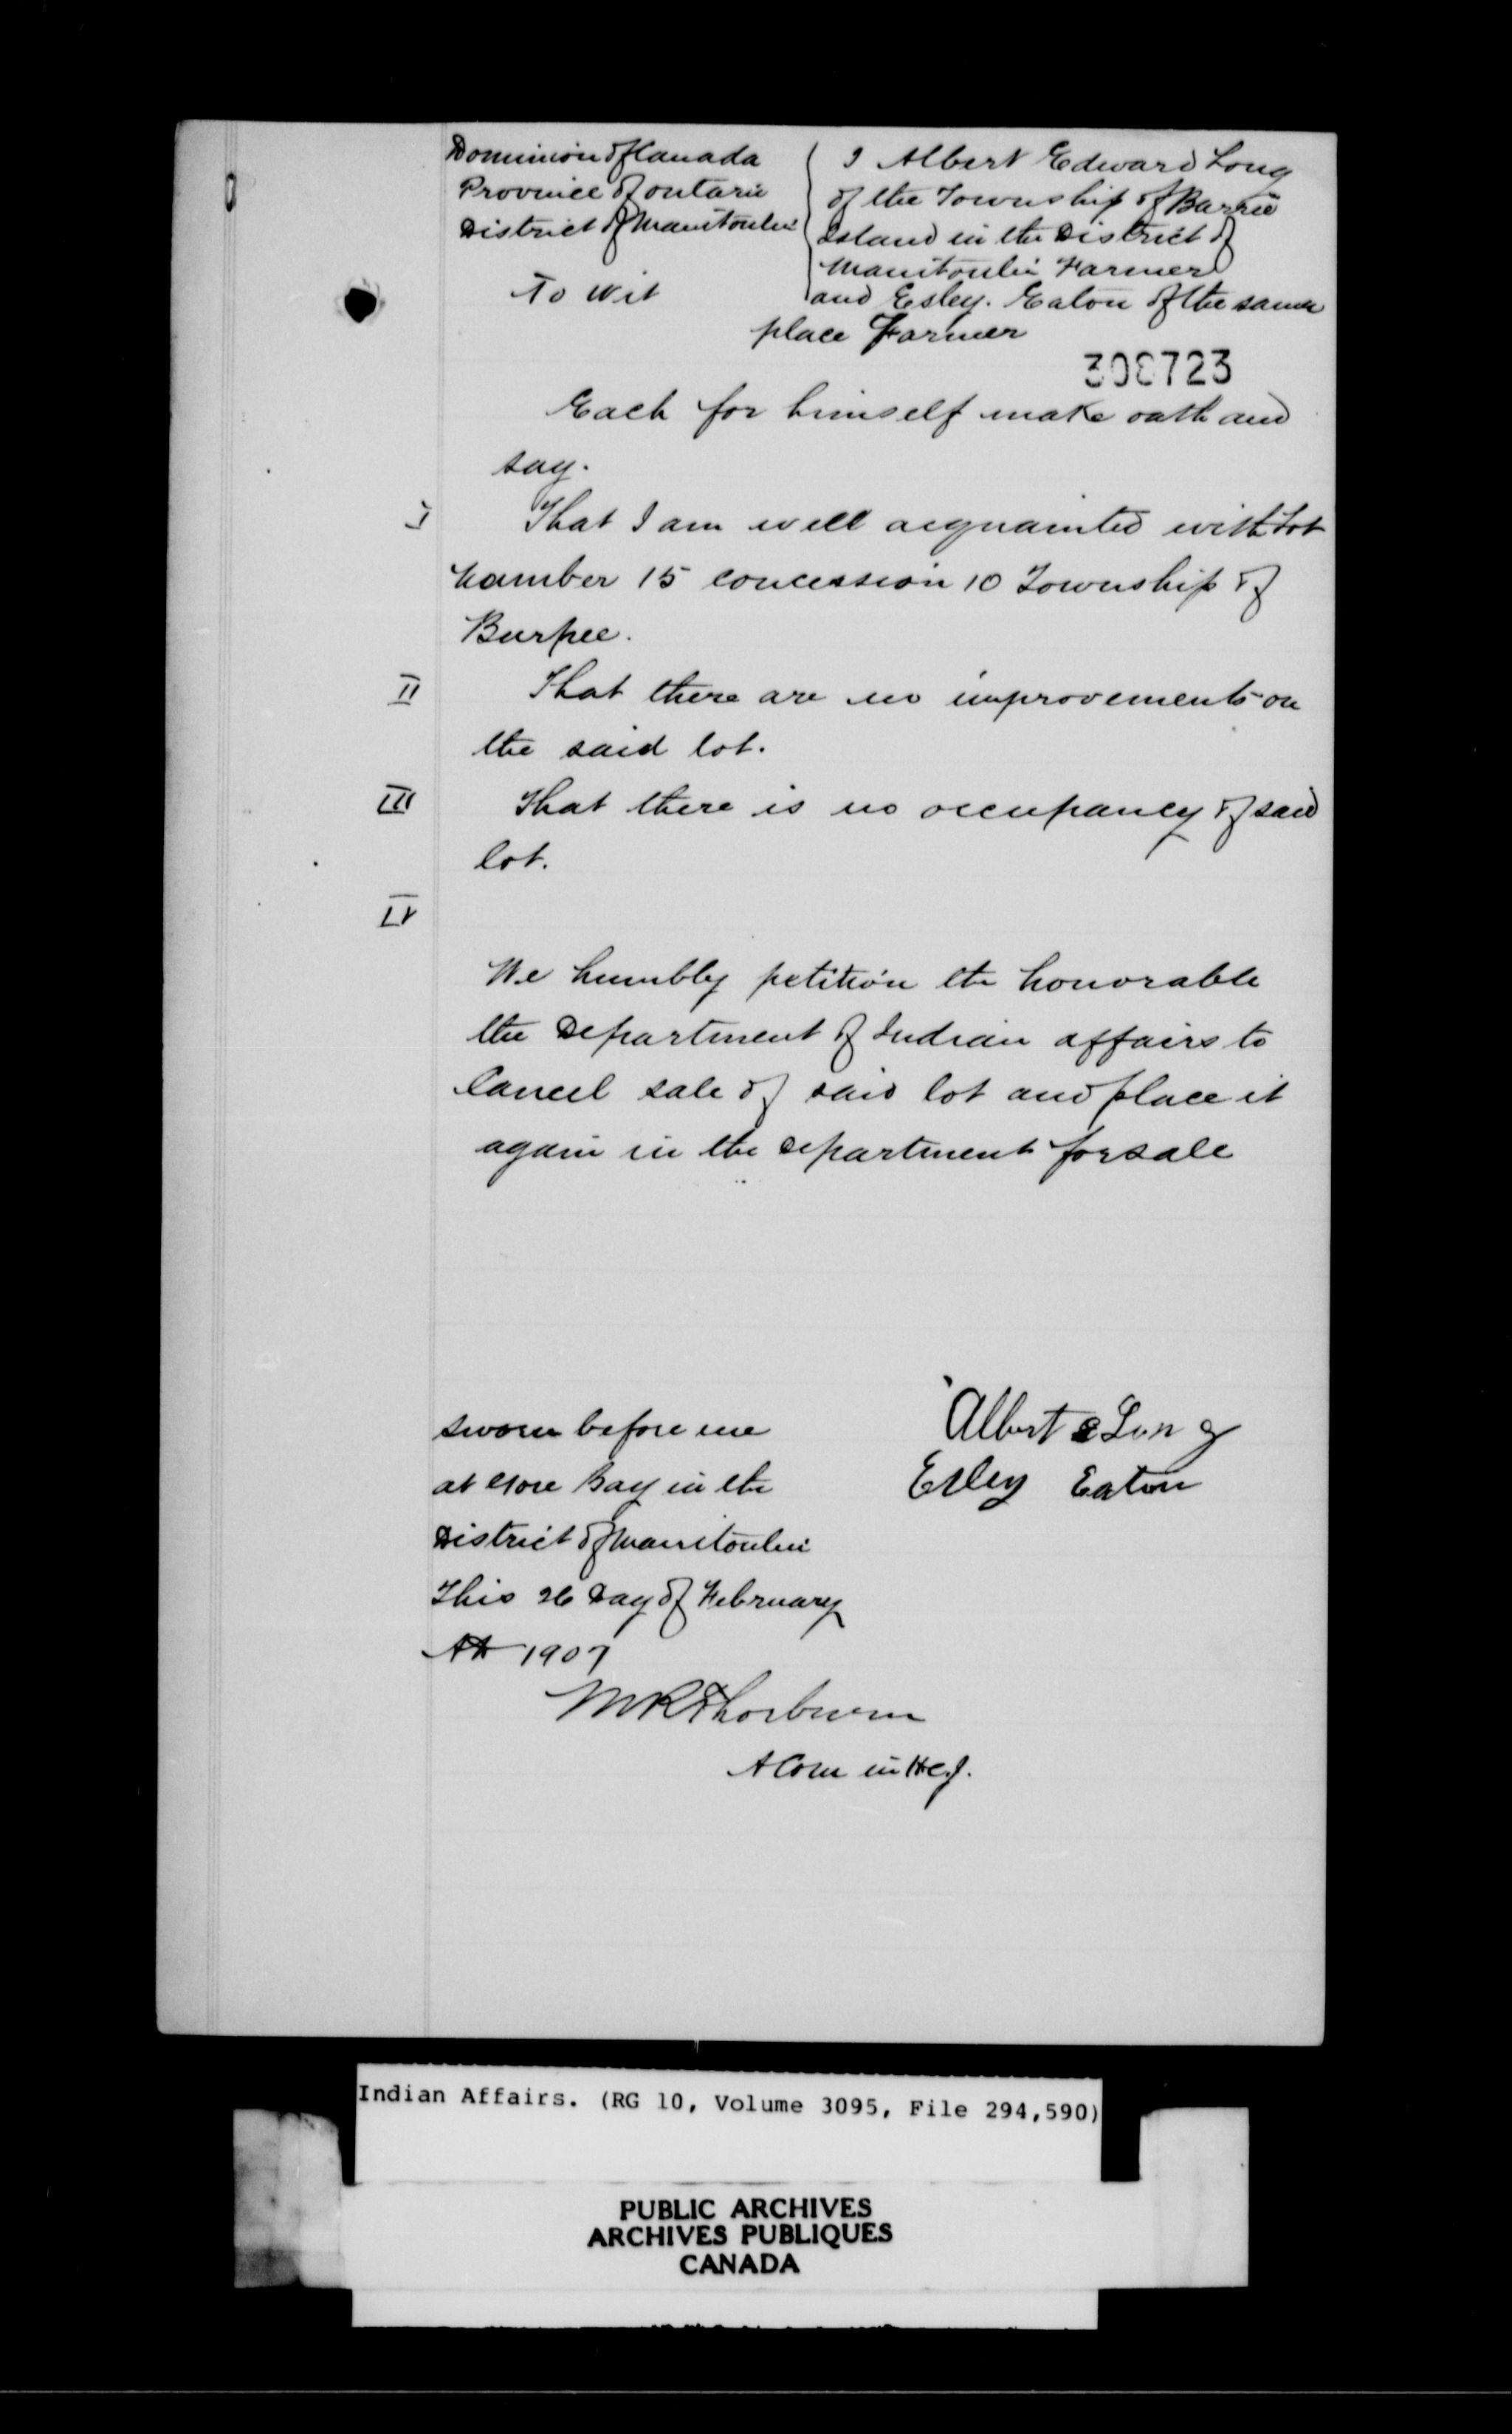 Dominion of Canada
Province of ontario
District of Manitoulin
To Wit
I Albert Edward Long
of the Township of Barrie
Island in the District of
Manitoulin Farmer
and Esley. Eaton of the same
place Farmer
308723
Each for himself make oath and
say.
I That I am well acquainted with Lot
number 15 concession 10 Township of
Burpee.
II That there are no improvements on
the said lot.
III That there is no occupancy of said
lot.
IV
We humbly petition the honorable
the Department of Indian affairs to
Cancel sale of said lot and place it
again in the Department for sale
sworn before me
at Gore Bay in the
District of Manitoulin
This 26 Day of February
AD 1907
Albert E Long
Esley Eaton
M R Thorburn
A Com in H.C.J.
Indian Affairs. (RG 10, Volume 3095, File 294,590)
PUBLIC ARCHIVES
ARCHIVES PUBLIQUES
CANADA